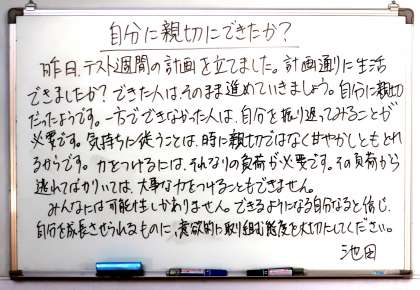 自分に親切にできたか?
昨日、テスト週間の計画を立てました。計画通りに生活
できましたか?できた人は、そのまま進めていきましょう。自分に親切
だったようです。一方でできなかった人は、自分を振り返ってみることが
必要です。気持ちに従うことは、時に親切ではなく甘やかしともとれ
るからです。力をつけるには、それなりの負荷が必要です。その負荷から
逃れてばかりいては、大事な力をつけることもできません。
みんなには可能性しかありません。できるようになる自分なると信じ、
自分を成長させられるものに、意欲的に取り組む態度を大切にしてください。
池田